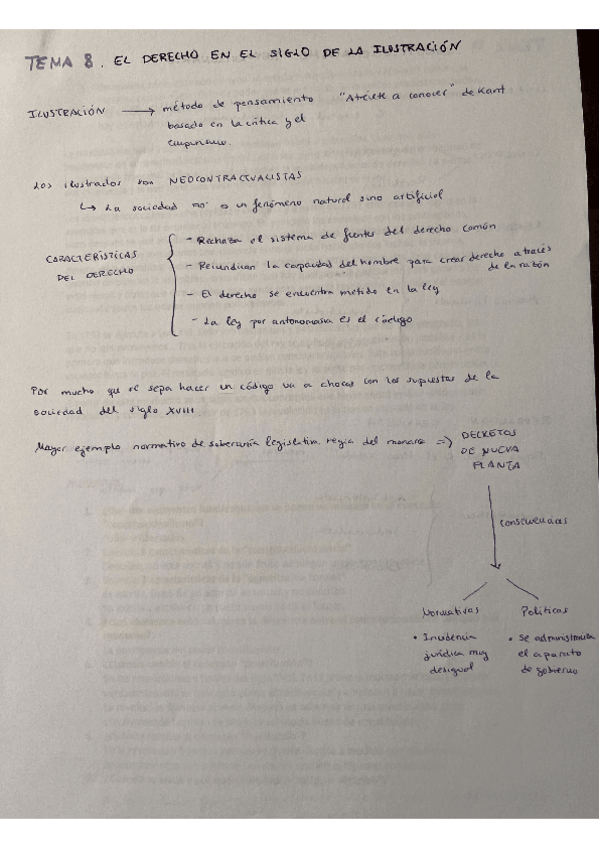 TEMA 8. EL DERECHO EN EL SIGLO DE LA ILUSTRACIÓN
ILUSTRACIÓN → método de pensamiento "Atrévete a conocer" de Kant
basado en la crítica y el
empirismo.
Los ilustrados son NEOCONTRACTUALISTAS
↳ La sociedad no es un fenómeno natural sino artificial
CARACTERÍSTICAS
DEL DERECHO
- Rechazan el sistema de fuentes del derecho común
- Reivindican la capacidad del hombre para crear derecho a través
de la razón
- El derecho se encuentra metido en la ley
- La ley por antonomasia es el código
Por mucho que se sepa hacer un código va a chocar con los supuestos de la
sociedad del siglo XVIII.
Mayor ejemplo normativo de soberanía legislativa regia del monarca => DECRETOS
DE NUEVA
PLANTA
consecuencias
Normativas
• Incidencia
jurídica muy
desigual
Políticas
• Se administrativiza
el aparato
de gobierno